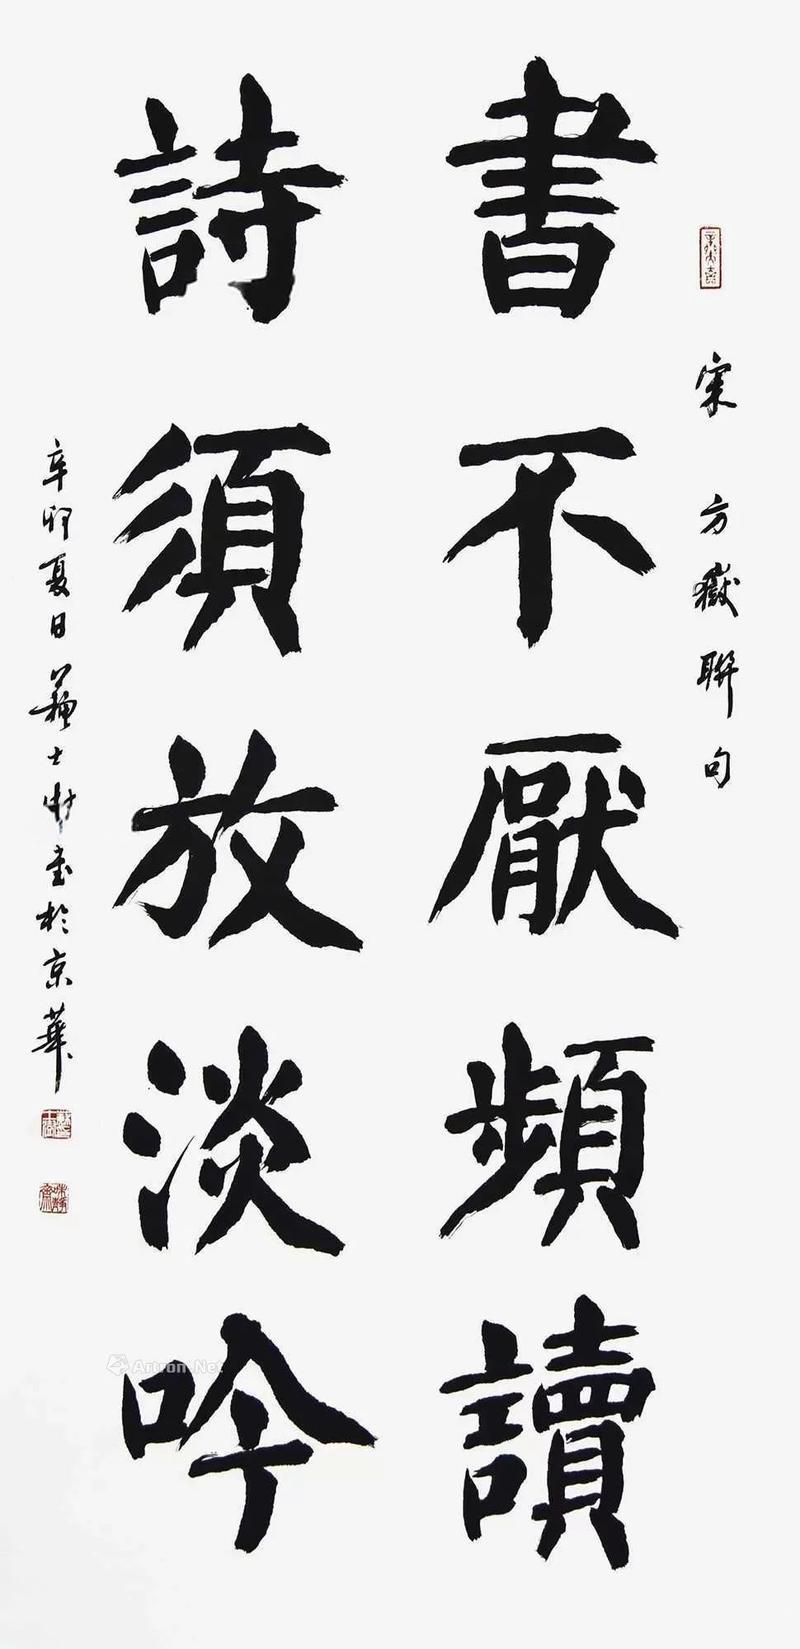 宋 方嶽聯句
書不厭頻讀
詩須放淡吟
辛卯夏日蘇士澍書於京華
Artron.Net